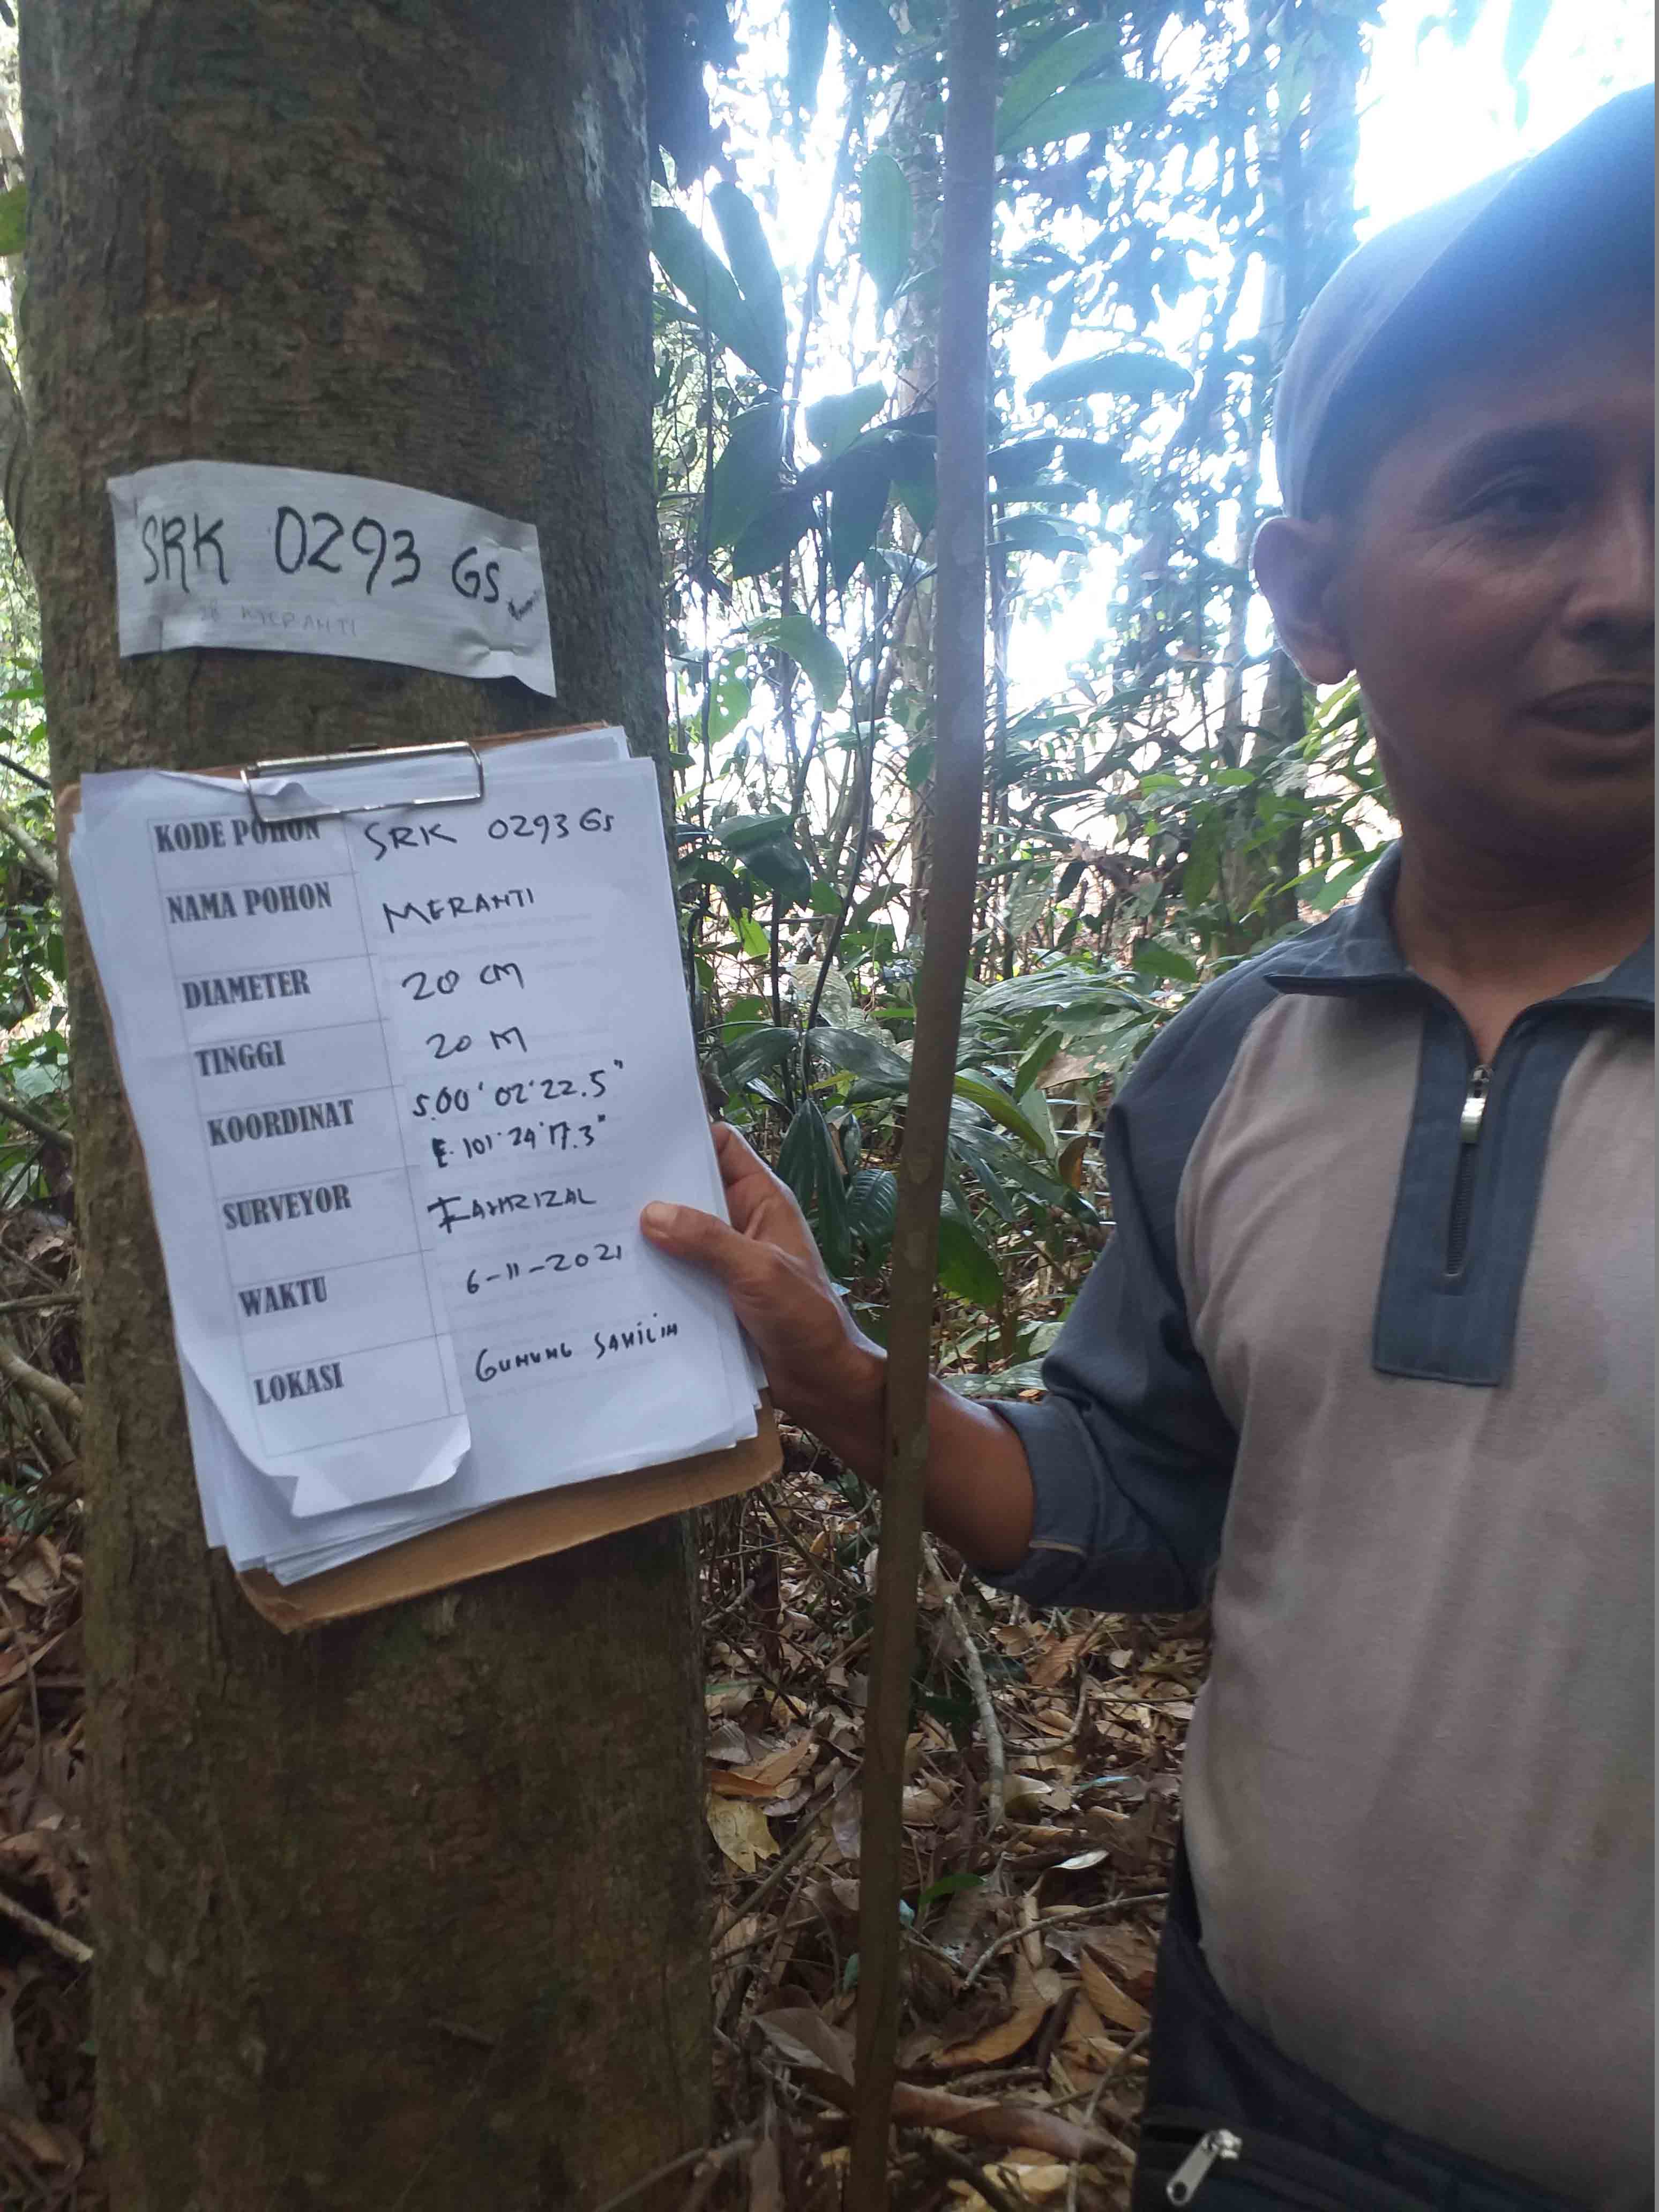 SRK 0293 GS
28 MERANTI
KODE POHON SRK 0293 GS
NAMA POHON MERANTI
DIAMETER 20 CM
TINGGI 20 M
KOORDINAT S.00'02'22.5"
E. 101°24'17.3"
SURVEYOR FAHRIZAL
WAKTU 6-11-2021
LOKASI GUNUNG SAHILIH